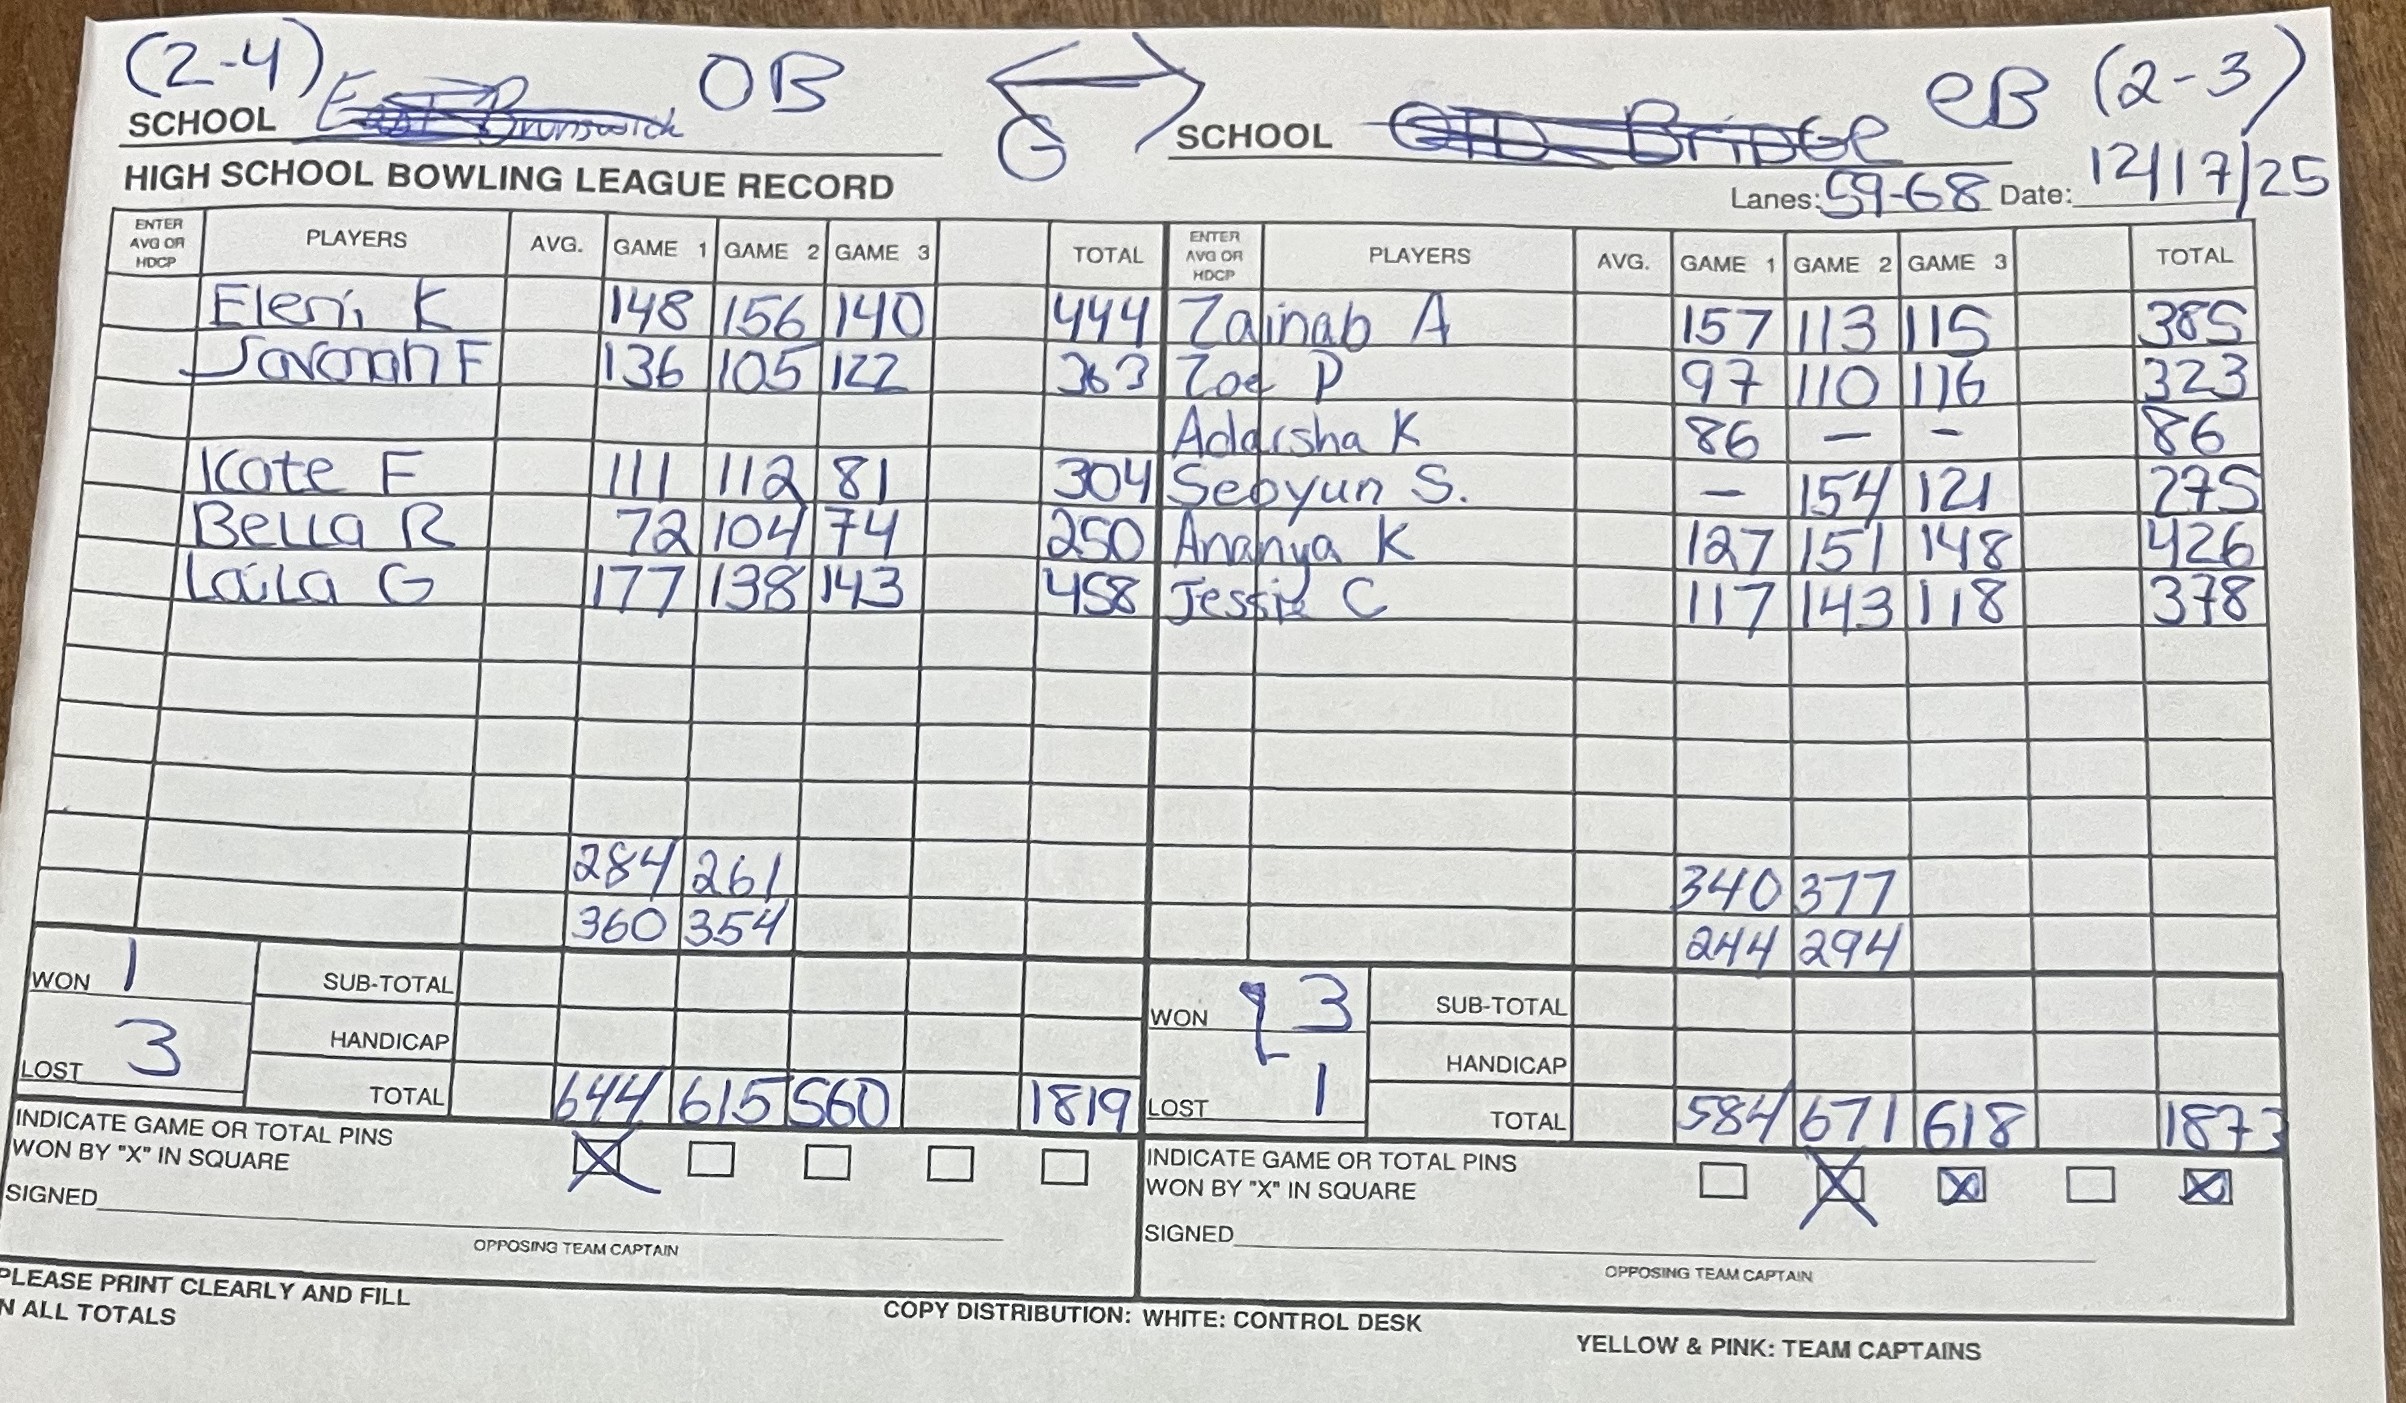 (2-4) OB G eB (2-3)
SCHOOL East Brunswick SCHOOL OLD BriDGe
HIGH SCHOOL BOWLING LEAGUE RECORD Lanes: 59-68 Date: 12/17/25
ENTER AVG OR HDCP PLAYERS AVG. GAME 1 GAME 2 GAME 3 TOTAL ENTER AVG OR HDCP PLAYERS AVG. GAME 1 GAME 2 GAME 3 TOTAL
Eleni K 148 156 140 444 Zainab A 157 113 115 385
Savanah F 136 105 122 363 Zoe P 97 110 116 323
Adarsha K 86 - - 86
Kate F 111 112 81 304 Seoyun S. - 154 121 275
Bella R 72 104 74 250 Ananya K 127 151 148 426
Laila G 177 138 143 458 Jessie C 117 143 118 378
284 261 340 377
360 354 244 294
WON 1 SUB-TOTAL WON 3 SUB-TOTAL
HANDICAP HANDICAP
LOST 3 TOTAL 644 615 560 1819 LOST 1 TOTAL 584 671 618 1873
INDICATE GAME OR TOTAL PINS INDICATE GAME OR TOTAL PINS
WON BY "X" IN SQUARE X WON BY "X" IN SQUARE X X X
SIGNED SIGNED
OPPOSING TEAM CAPTAIN OPPOSING TEAM CAPTAIN
PLEASE PRINT CLEARLY AND FILL
N ALL TOTALS
COPY DISTRIBUTION: WHITE: CONTROL DESK
YELLOW & PINK: TEAM CAPTAINS